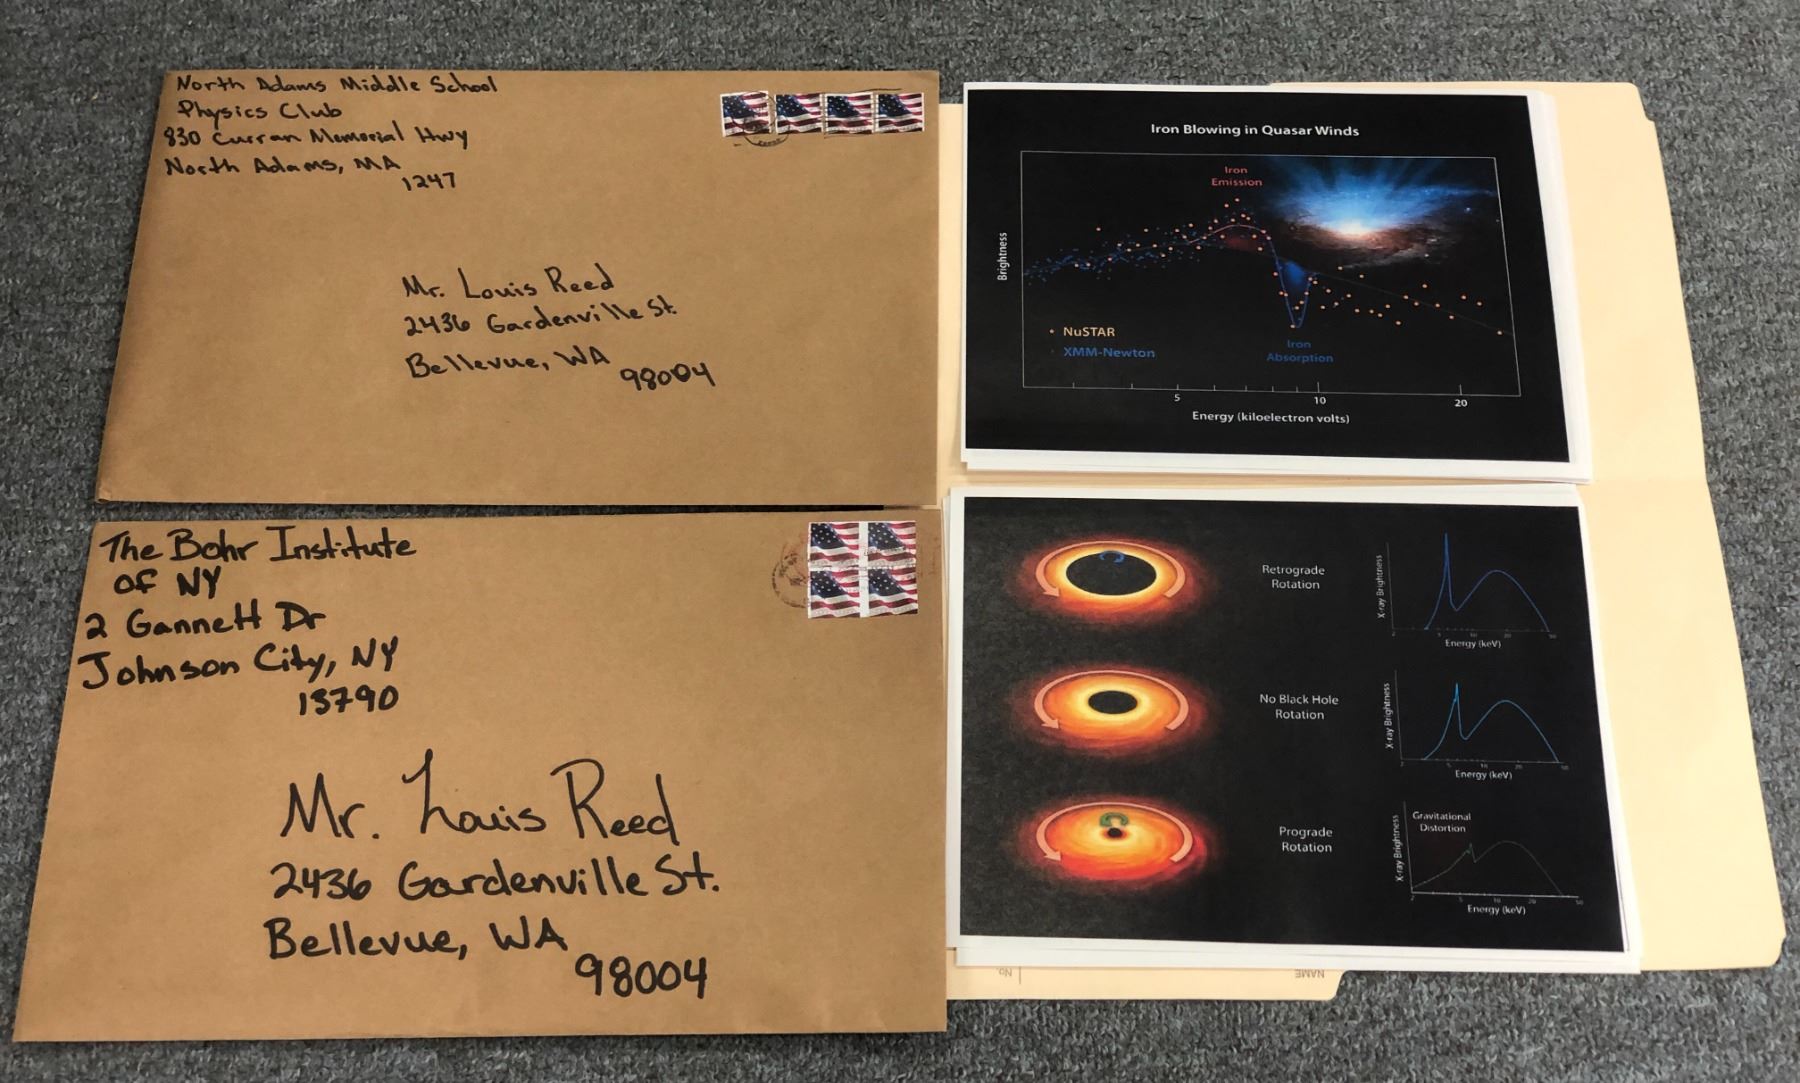 North Adams Middle School
Physics Club
830 Curran Memorial Hwy
North Adams, MA
1247
Mr. Louis Reed
2436 Gardenville St.
Bellevue, WA
98004
The Bohr Institute
of NY
2 Gannett Dr
Johnson City, NY
13790
Mr. Louis Reed
2436 Gardenville St.
Bellevue, WA
98004
Iron Blowing in Quasar Winds
Iron
Emission
Brightness
NuSTAR
XMM-Newton
Iron
Absorption
5 10 20
Energy (kiloelectron volts)
Retrograde
Rotation
X-ray Brightness
2 5 10 20 50
Energy (keV)
No Black Hole
Rotation
X-ray Brightness
2 5 10 20 50
Energy (keV)
Prograde
Rotation
Gravitational
Distortion
X-ray Brightness
2 5 10 20 50
Energy (keV)
No.
NAME